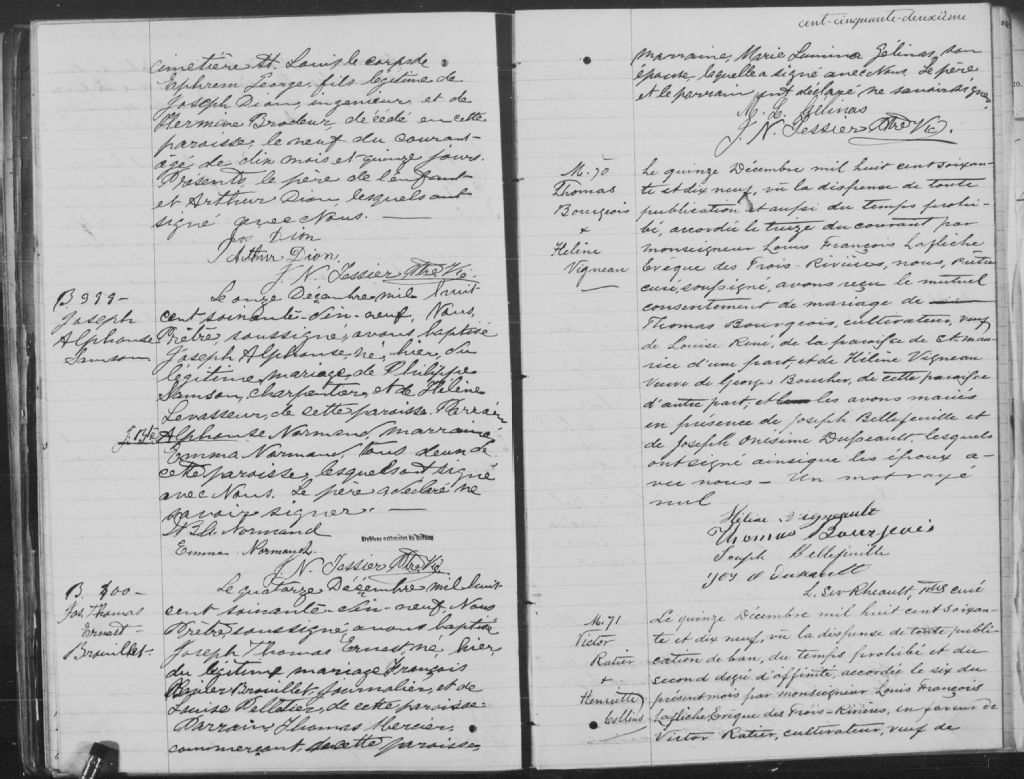 cimetière St. Louis, le corps de
Ephrem Georges fils légitime de
Joseph Dion, ingenieur, et de
Hermine Brodeur, décédé en cette
paroisse, le neuf du courant
agé de dix mois et quinze jours.
Présents, le père de l'enfant
et Arthur Dion, lesquels ont
signé avec Nous. —
Jos Dion
Arthur Dion.
J. N. Tessier Ptre Vic.
B 299 -
Joseph
Alphonse
Samson
Le onze Décembre mil huit
cent soixante-dix-neuf, Nous,
Prêtre, soussigné, avons baptisé
Joseph Alphonse, né, hier, du
légitime mariage, de Philippe
Samson, charpentier, et de Hélène
Levasseur, de cette paroisse. Parrain,
Alphonse Normand, marraine,
Emma Normand, tous deux de
cette paroisse, lesquels ont signé
avec Nous. Le père a déclaré ne
savoir signer. —
Normand
Emma Normand.
Archives nationales du Québec
J. N. Tessier Ptre Vic
B. 300 -
Jos. Thomas
Ernest
Brouillet.
Le quatorze Décembre mil huit
cent soixante-dix-neuf, Nous
Prêtre soussigné, avons baptisé
Joseph Thomas Ernest, né, hier,
du légitime mariage François
Xavier Brouillet, journalier, et de
Louise Pelletier, de cette paroisse.
Parrain, Thomas Mercier,
commerçant de cette paroisse
cent-cinquante-deuxième
marraine, Marie Lumina Gélinas, son
épouse, laquelle a signé avec Nous. Le père
et le parrain ont déclaré ne savoir signer
M. L. Gélinas
J. N. Tessier Ptre Vic.
M. 70
Thomas
Bourgeois
+
Hélène
Vigneau
Le quinze Décembre mil huit cent soixan-
te et dix neuf, vû la dispense de toute
publication et aussi du temps prohi-
bé, accordée le treize du courant par
monseigneur Louis François Laflèche
Evêque des Trois-Rivières, nous, Prêtre
curé soussigné, avons reçu le mutuel
consentement de mariage de
Thomas Bourgeois, cultivateur, veuf
de Louise René, de la paroisse de St. Mau-
rice d'une part, et de Hélène Vigneau
veuve de Georges Boucher, de cette paroisse
d'autre part, et les avons mariés
en présence de Joseph Bellefeuille et
de Joseph Onésime Dusseault, lesquels
ont signé ainsi que les époux a-
vec nous — Un mot rayé
nul
Hélène Vigneault
Thomas Bourgeois
Joseph Bellefeuille
L. Sev. Rheault, Ptre curé
M. 71
Victor
Ratier
+
Henriette
Collins
Le quinze Décembre mil huit cent soixan-
te et dix neuf, vû la dispense de toute publi-
cation de ban, du temps prohibé et du
second degré d'affinité, accordée le six du
présent mois par monseigneur Louis François
Laflèche Evêque des Trois-Rivières, en faveur de
Victor Ratier, cultivateur, veuf de